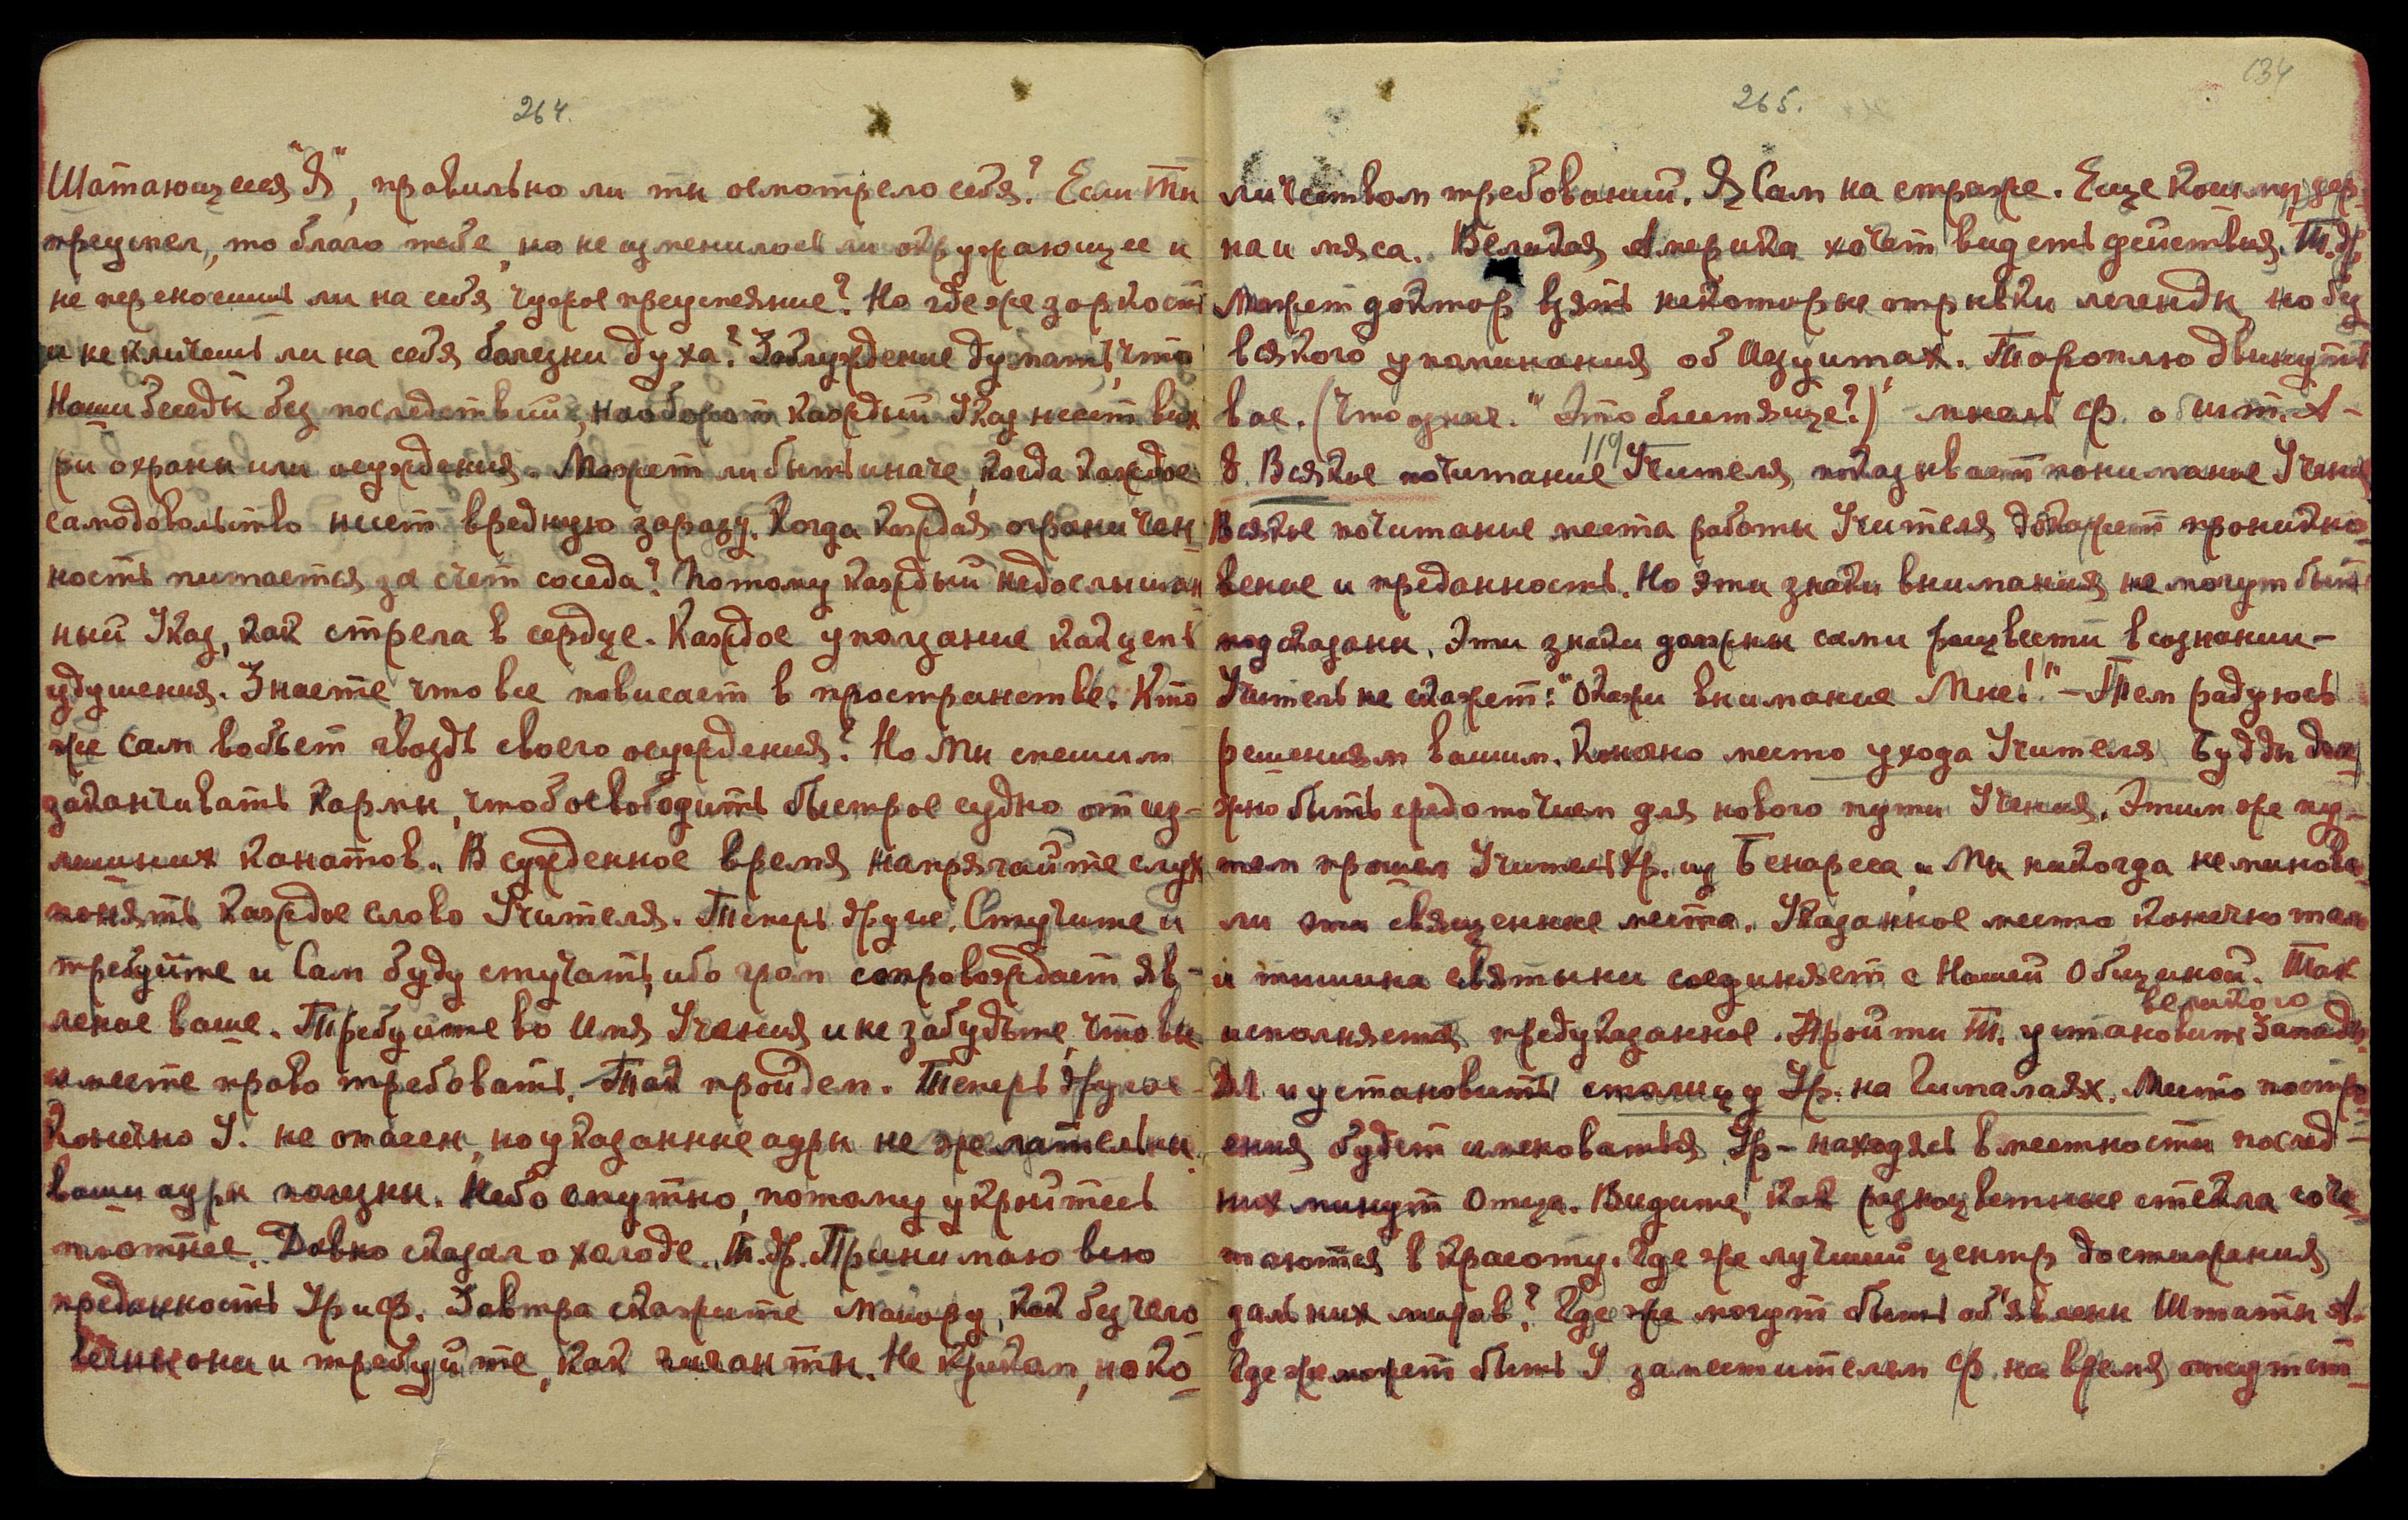 264.
Шатающееся "Я", правильно ли ты осмотрело себя? Если ты
преуспел, то благо тебе, но не изменилось ли окружающее и
не переносишь ли на себя чужое преуспеяние? Но где же зоркость
и не кличешь ли на себя болезни духа? Заблуждение думать, что
Наши беседы без последствий, наоборот каждый Указ несет вих
ри охраны или осуждения. Может ли быть иначе, когда каждое
самодовольство несет вредную заразу. Когда каждая ограничен-
ность питается за счет соседа? Потому каждый недослышан
ный Указ, как стрела в сердце. Каждое уползание как цепь
удушения. Знаете, что все повисает в пространстве. Кто
же сам вобьет гвоздь своего осуждения? Но Мы спешим
заканчивать кармы, чтоб освободить быстрое судно от из-
лишних канатов. В сужденное время напрягайте слух
понять каждое слово Учителя. Теперь другое. Стучите и
требуйте и Сам буду стучать, ибо гром сопровождает яв-
ление ваше. Требуйте во Имя Учения и не забудьте, что вы
имеете право требовать. Так пройдем. Теперь другое-
Конечно У. не опасен, но указанные ауры не желательны.
ваши ауры полезны. Небо смутно, потому укройтесь
плотнее. Давно сказал о холоде. Т. др. Принимаю всю
преданность Ур и Ф. Завтра скажите майору, как без чего
вечны они и требуйте, как гиганты. Не криком, но ко-
134
265.
личеством требований. Я Сам на страже. Еще кошмы, зер-
на и мяса. Великая Америка хочет видеть действия. Т. др.
Может доктор взять некоторые отрывки легенды, но без
всякого упоминания об Иезуитах. Тороплю двинуть
вас. (Что думае. "Это блестяще?) мысль Ф. о Шт. А-
119
8. Всякое почитание Учителя показывает понимание Учения
Всякое почитание места работы Учителя докажет проникно-
вение и преданность. Но эти знаки внимания не могут быть
подсказаны. Эти знаки должны сами расцвести в сознании-
Учитель не скажет: "Окажи внимание Мне!" - Тем радуюсь
решениям вашим. Конечно место ухода Учителя Будды дол-
жно быть средоточием для нового пути Учения. Этим же пу-
тем прошел Учитель Хр. из Бенареса, и Мы никогда не минова-
ли эти священные места. Указанное место конечно там
и тишина святыни соединяет с Нашей Общиной. Так
великого
исполняется предуказанное. Пройти Т. установить Запады.
и установить столицу Ур. на Гималаях. Место постро-
ения будет именоваться Ур - находясь в местности послед-
них минут Отца. Видите, как разноцветные стекла соче-
таются в красоту. Где же лучший центр достижения
дальних миров? Где же могут быть об'явлены Штаты А.
Где же может быть У заместителем Ф. на время отсутст-